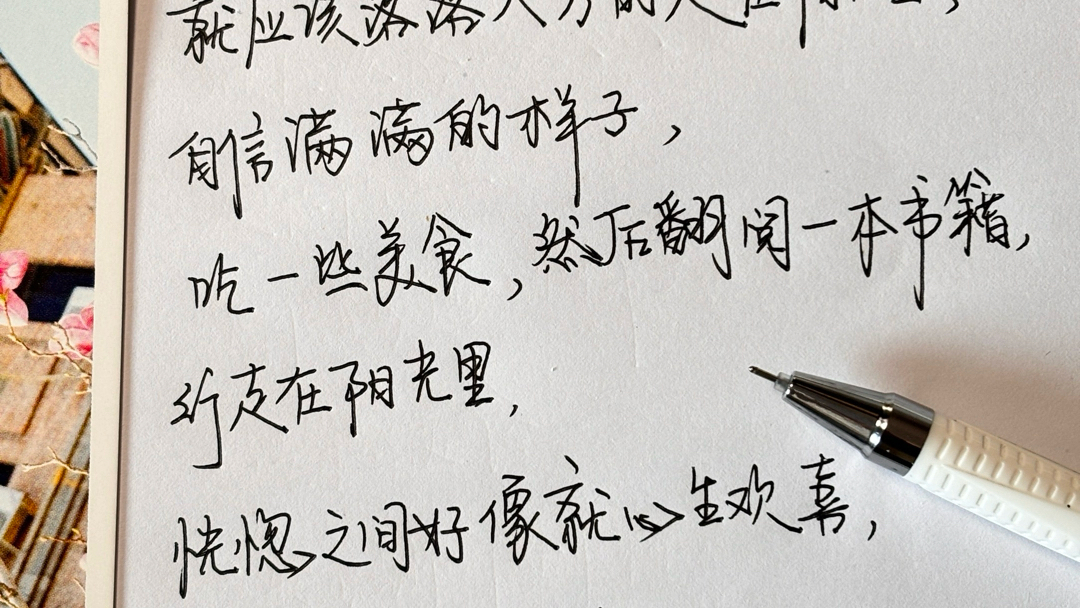 就应该落落大方的走在阳光里，
自信满满的样子，
吃一些美食，然后翻阅一本书籍，
行走在阳光里，
恍惚之间好像就心生欢喜，